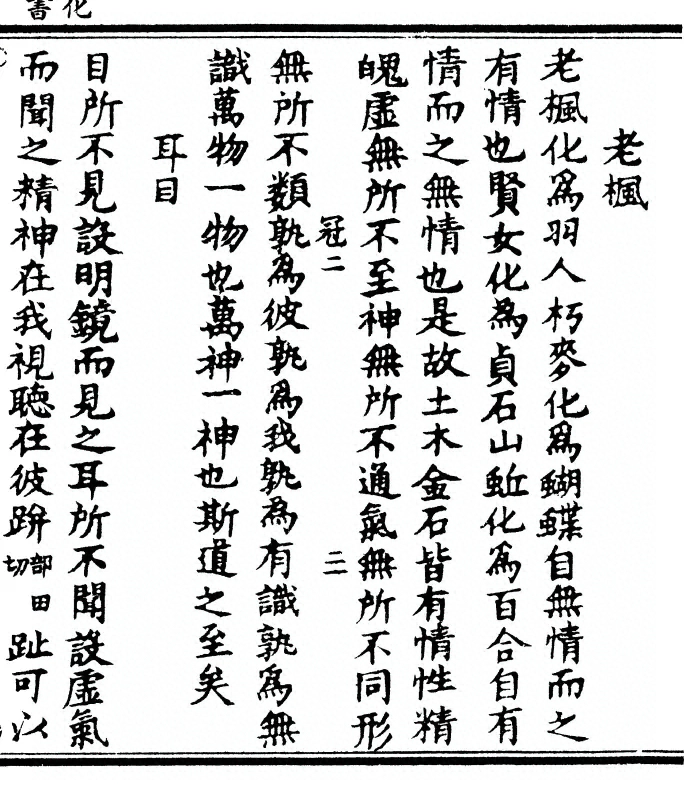 化書
老楓
老楓化為羽人朽麥化為蝴蝶自無情而之
有情也賢女化為貞石山蚯化為百合自有
情而之無情也是故土木金石皆有情性精
魄虛無所不至神無所不通氣無所不同形
冠二 二
無所不類孰為彼孰為我孰為有識孰為無
識萬物一物也萬神一神也斯道之至矣
耳目
目所不見設明鏡而見之耳所不聞設虛氣
而聞之精神在我視聽在彼跰部田切趾可以